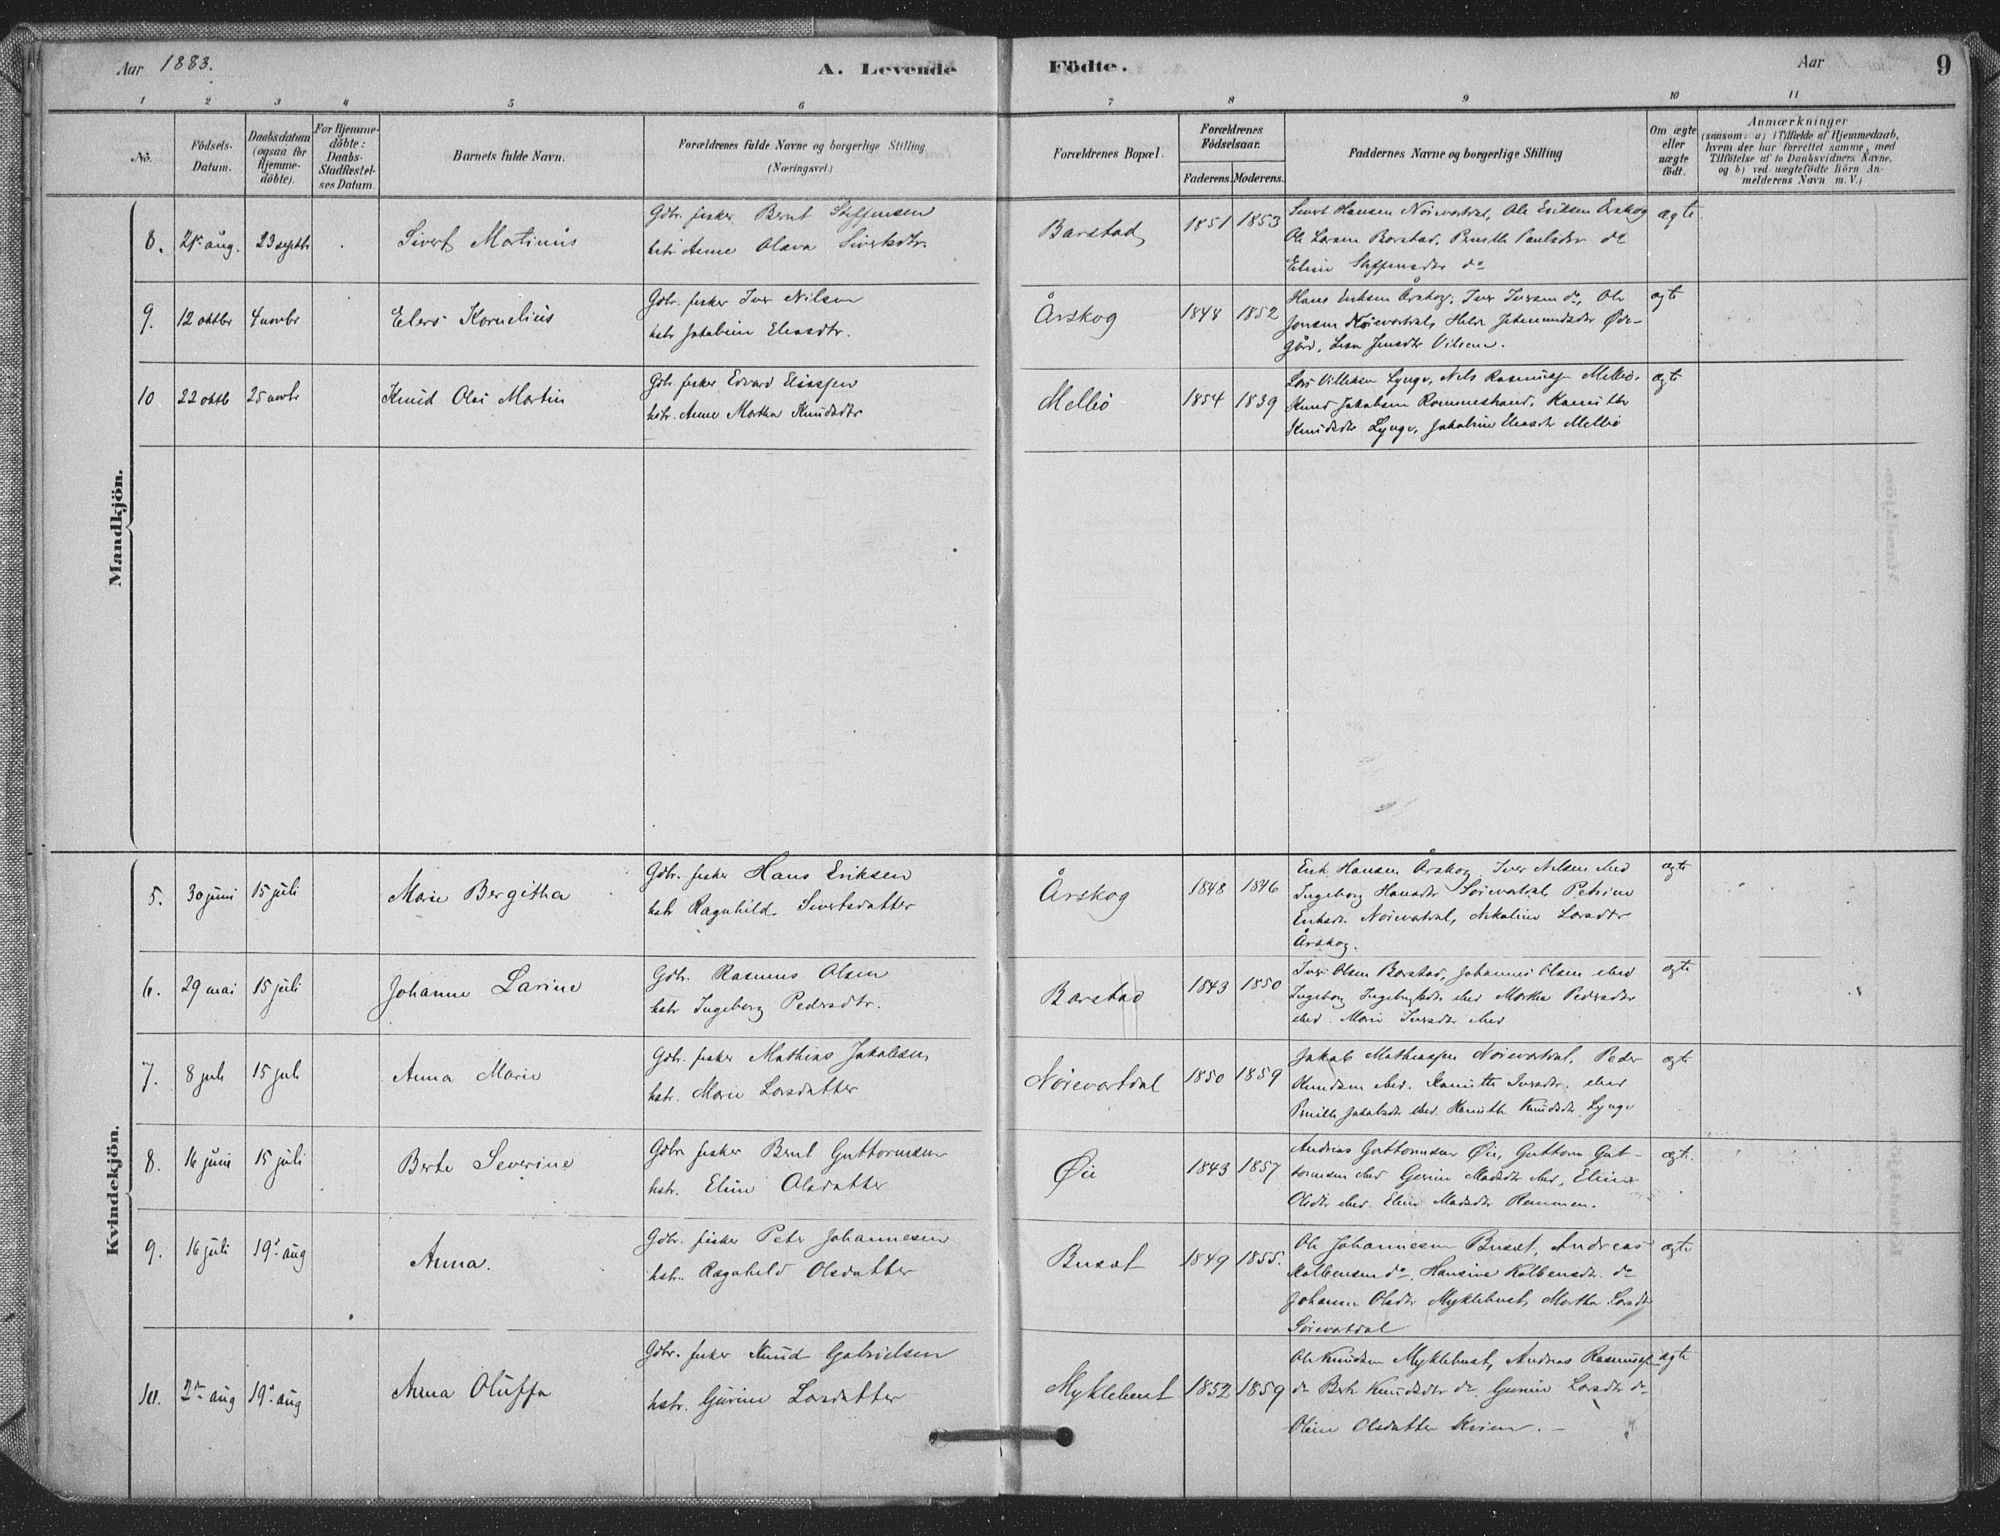 Aar 1883.
A. Levende Födte.
Aar
9
1 2 3 4 5 6 7 8 9 10 11
No.
Födsels-Datum.
Daabsdatum (ogsaa for Hjemme-döbte).
For Hjemme-döbte: Daabs-Stadfestel-ses Datum.
Barnets fulde Navn.
Forældrenes fulde Navne og borgerlige Stilling (Næringsvei.)
Forældrenes Bopæl.
Forældrenes Födselsaar.
Faderens. Moderens.
Faddernes Navne og borgerlige Stilling
Om ægte eller uægte födt.
Anmærkninger
(saasom: a) i Tilfælde af Hjemmedaab,
hvem der har forrettet samme, med
Tilföielse af to Daabsvidners Navne,
og b) ved uægtefödte Börn An-
melderens Navn m. V.)
Mandkjön.
8. 21 aug. 23 septbr Sivert Martinus
Gdbr. fisker Bernt Steffensen
hstr Anne Olava Sivertsdtr.
Barstad 1851 1853
Sivert Hansen Nöievartdal, Ole Eriksen Årskog
Ole Larsen Barstad, Pernille Paulsdtr do
Eline Steffensdtr do
ægte
9. 12 oktbr 4 novbr Elers Kornelius
Gdbr. fisker Iver Nilsen
hstr Jakobine Eliasdtr.
Årskog 1848 1852
Hans Eriksen Årskog, Iver Iversen do, Ole
Jonsen Nöievartdal, Øde-
gård, Jensdtr
ægte
10 22 oktb 25 novbr Knud Olai Martin
Gdbr fisker Edvard Eliassen
hstr. Anne Martha Knudsdtr
Melbö 1854 1839
Lars Villiksen Lynge, Nils Rasmuss Melbö,
Knud Jakobsen Rommestrand,
Knudsdtr Lynge, Jakobine Eliasdtr Melbö
ægte
Kvindekjön.
5. 30 juni 15 juli Marie Bergitha
Gdbr. fisker Hans Eriksen
hstr Ragnhild Sivertsdatter
Årskog 1848 1846
Erik Hansen Årskog Iver Nilsen ibid
Ingeborg Hansdtr Söievartdal Petrine
Eriksdtr Nöievartdal, Nikoline Larsdtr
Årskog.
ægte
6. 29 mai 15 juli Johanne Larine
Gdbr. Rasmus Olsen
hstr Ingeborg Pedersdtr.
Barstad 1843 1850
Iver Olsen Barstad, Johannes Olsen ibid
Ingeborg Ingebrigtsdtr ibid Martha Pedersdtr
ibid. Marie Iversdtr ibid
ægte
7. 8 juli 15 juli Anna Marie
Gdbr. fisker Mathias Jakobsen
hstr. Marie Larsdatter
Nöievartdal 1850 1859
Jakob Mathiassen Nöievartdal, Peder
Knudsen ibid. Iversdtr. ibid
Pernille Jakobsdtr ibid. Knudsdtr Lynge
ægte
8. 16 juni 15 juli Berte Severine
Gdbr fisker Bernt Guttormsen
hstr. Eline Olsdatter
Øie 1843 1857
Andreas Guttormsen Øie, Guttorm Gut-
tormsen ibid Gurine Madsdtr ibid, Eline
Olsdtr ibid. Eline Madsdtr Rommen.
ægt.
9. 16 juli 19 aug Anna.
Gdbr. fisker Peter Johannesen
hstr. Ragnhild Olsdatter
Busæt 1849 1855.
Ole Johannesen Busæt, Andreas
Kolbensen do, Hansine Kolbensdtr. do
Johanne Olsdtr Myklebust, Martha Larsdtr
Söievartdal
ægte
10. 2 aug 19 aug Anna Oluffa
Gdbr. fisker Knud Gabrielsen
hstr. Gurine Larsdatter
Myklebust 1852 1859
Ole Knudsen Myklebust, Andreas Rasmuss
do Berte Knudsdtr do. Gurine Larsdtr do
Oline Olsdatter Kvien. -
ægte